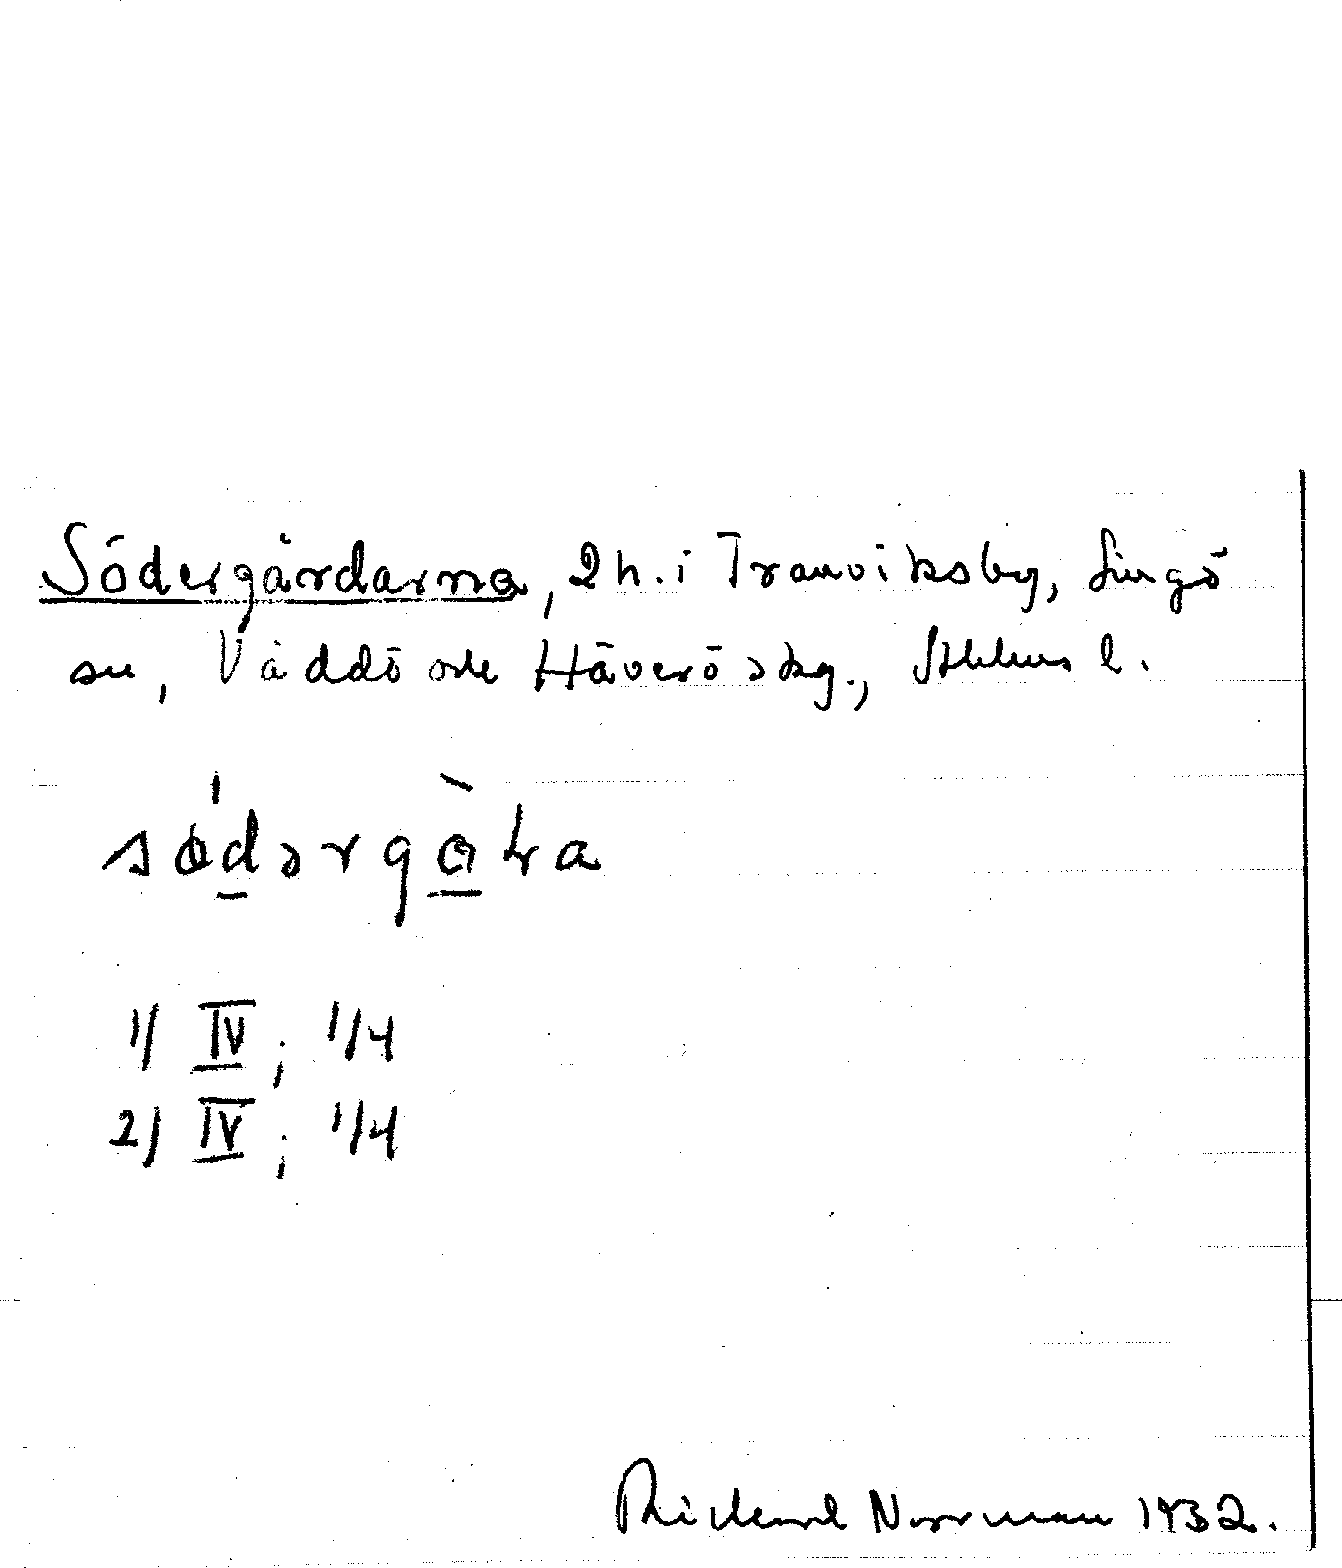 Södergårdarna, 2 h. i Tranviksby, Singö
sn, Väddö och Häverö skg., Sthlms l.
södərgɷ̀ʈa
1) IV ; 1/4
2) IV ; 1/4
Rickard Norrman 1932.